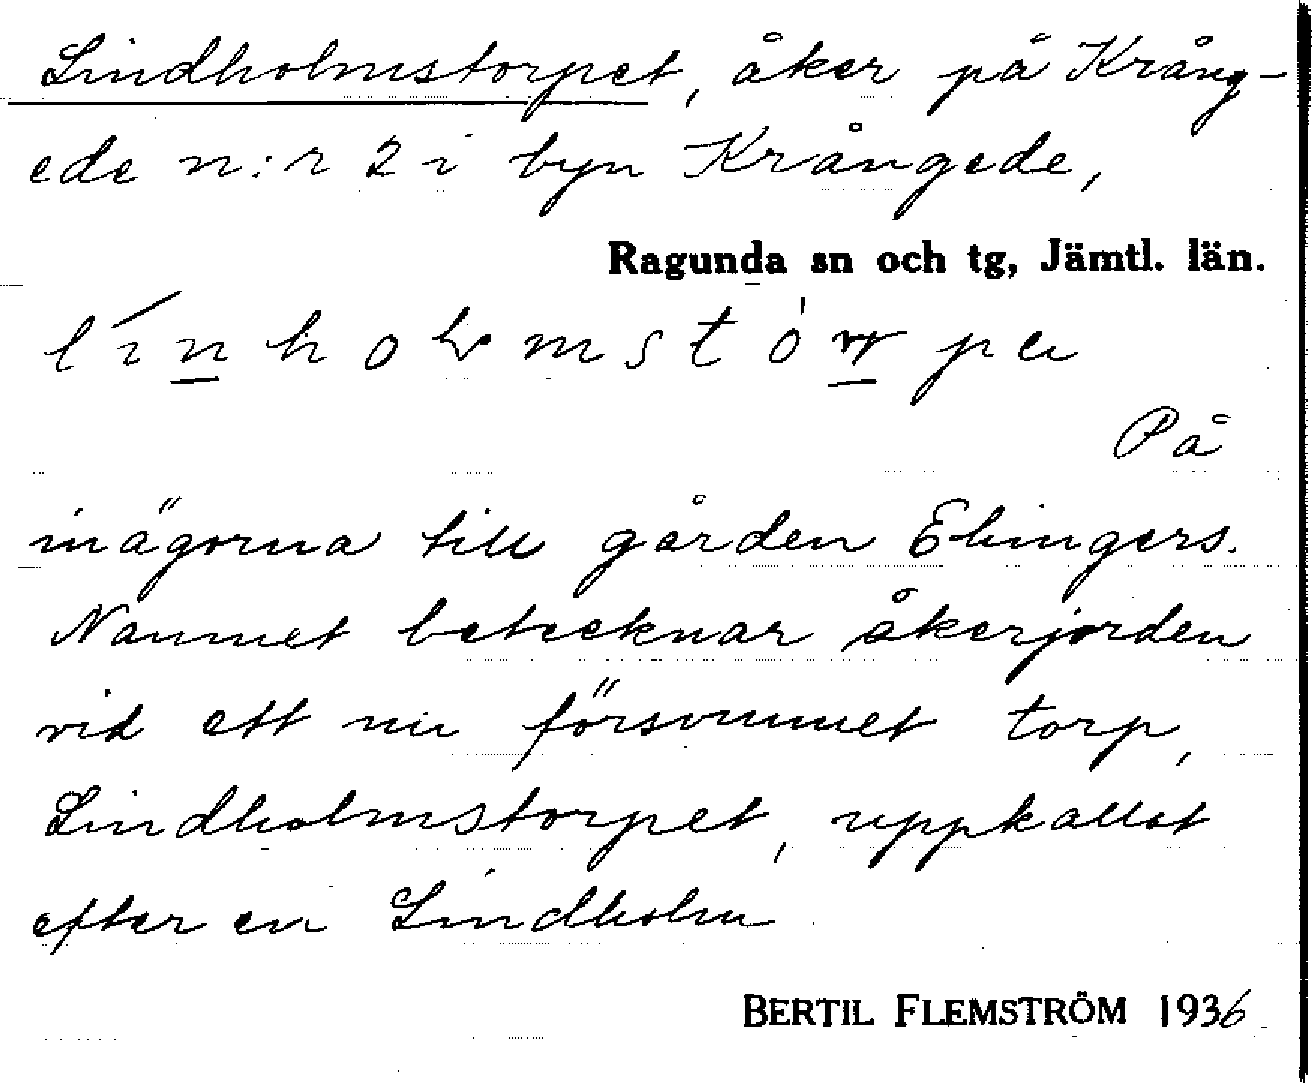 Lindholmstorpet, åker på Krång-
ede n:r 2 i byn Krångede,
Ragunda sn och tg, Jämtl. län.
På
inägorna till gården Ehingers.
Namnet betecknar åkerjorden
vid ett nu försvunnet torp,
Lindholmstorpet, uppkallat
efter en Lindholm
BERTIL FLEMSTRÖM 1936